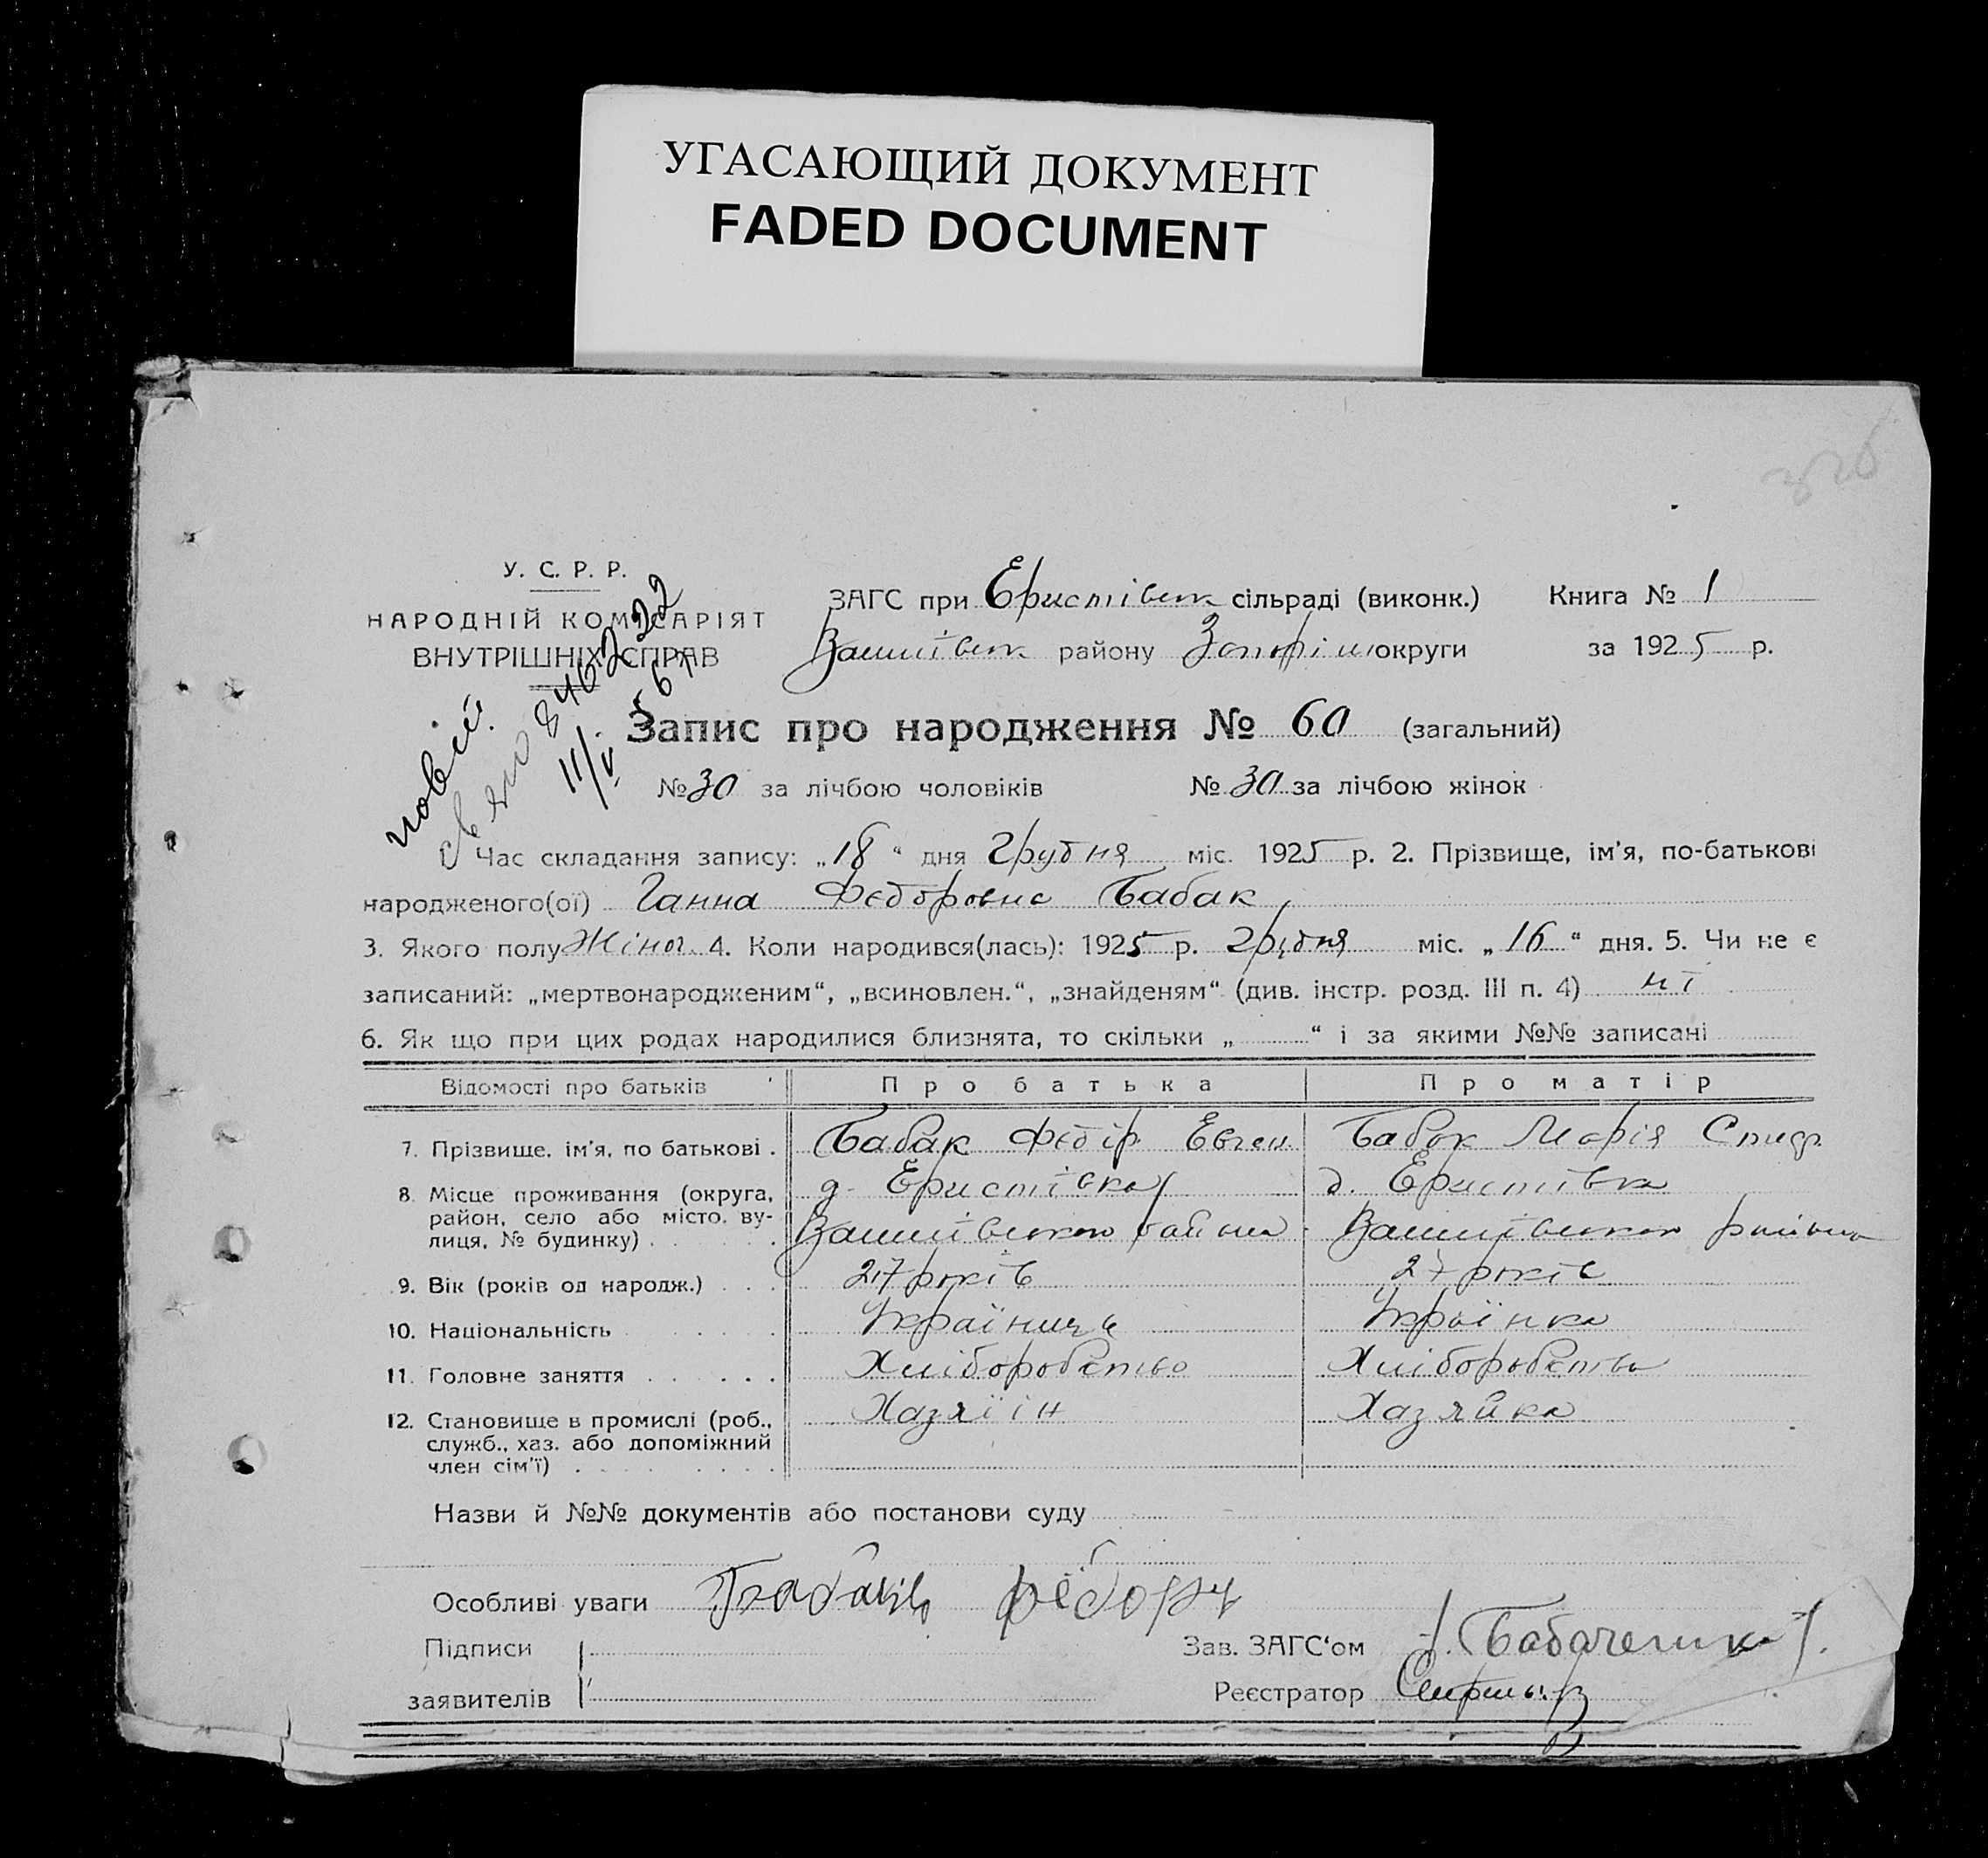 УГАСАЮЩИЙ ДОКУМЕНТ
FADED DOCUMENT
У. С. Р. Р.
НАРОДНІЙ КОМІСАРІЯТ
ВНУТРІШНІХ СПРАВ
ЗАГС при Ериствівськ сільраді (виконк.) Книга № 1
району округи за 1925 р.
Запис про народження № 60 (загальний)
№ 30 за лічбою чоловіків № 30 за лічбою жінок
Час складання запису: „18“ дня Грудня міс. 1925 р. 2. Прізвище, ім'я, по-батькові
народженого(ої) Ганна Федоровна Бабак
3. Якого полу Жіноч. 4. Коли народився(лась): 1925 р. Грудня міс. „16“ дня. 5. Чи не є
записаний: „мертвонародженим“, „всиновлен.“, „знайденям“ (див. інстр. розд. III п. 4) ні
6. Як що при цих родах народилися близнята, то скільки „ “ і за якими №№ записані
Відомості про батьків Про батька Про матір
7. Прізвище, ім'я, по батькові . Бабак Федір Евген Бабак Марія Спид.
8. Місце проживання (округа, д. Еристівка д. Еристівка
район, село або місто, ву-
лиця, № будинку) . району району
9. Вік (років од народж.) . . . 27 років 27 років
10. Національність Українець Українка
11. Головне заняття . . . . . . Хліборобство Хліборобство
12. Становище в промислі (роб., Хазяїін Хазяйка
служб., хаз. або допоміжний
член сім'ї) .
Назви й №№ документів або постанови суду
Особливі уваги Бабакъ Федоръ
Підписи Зав. ЗАГС'ом
заявителів Реєстратор